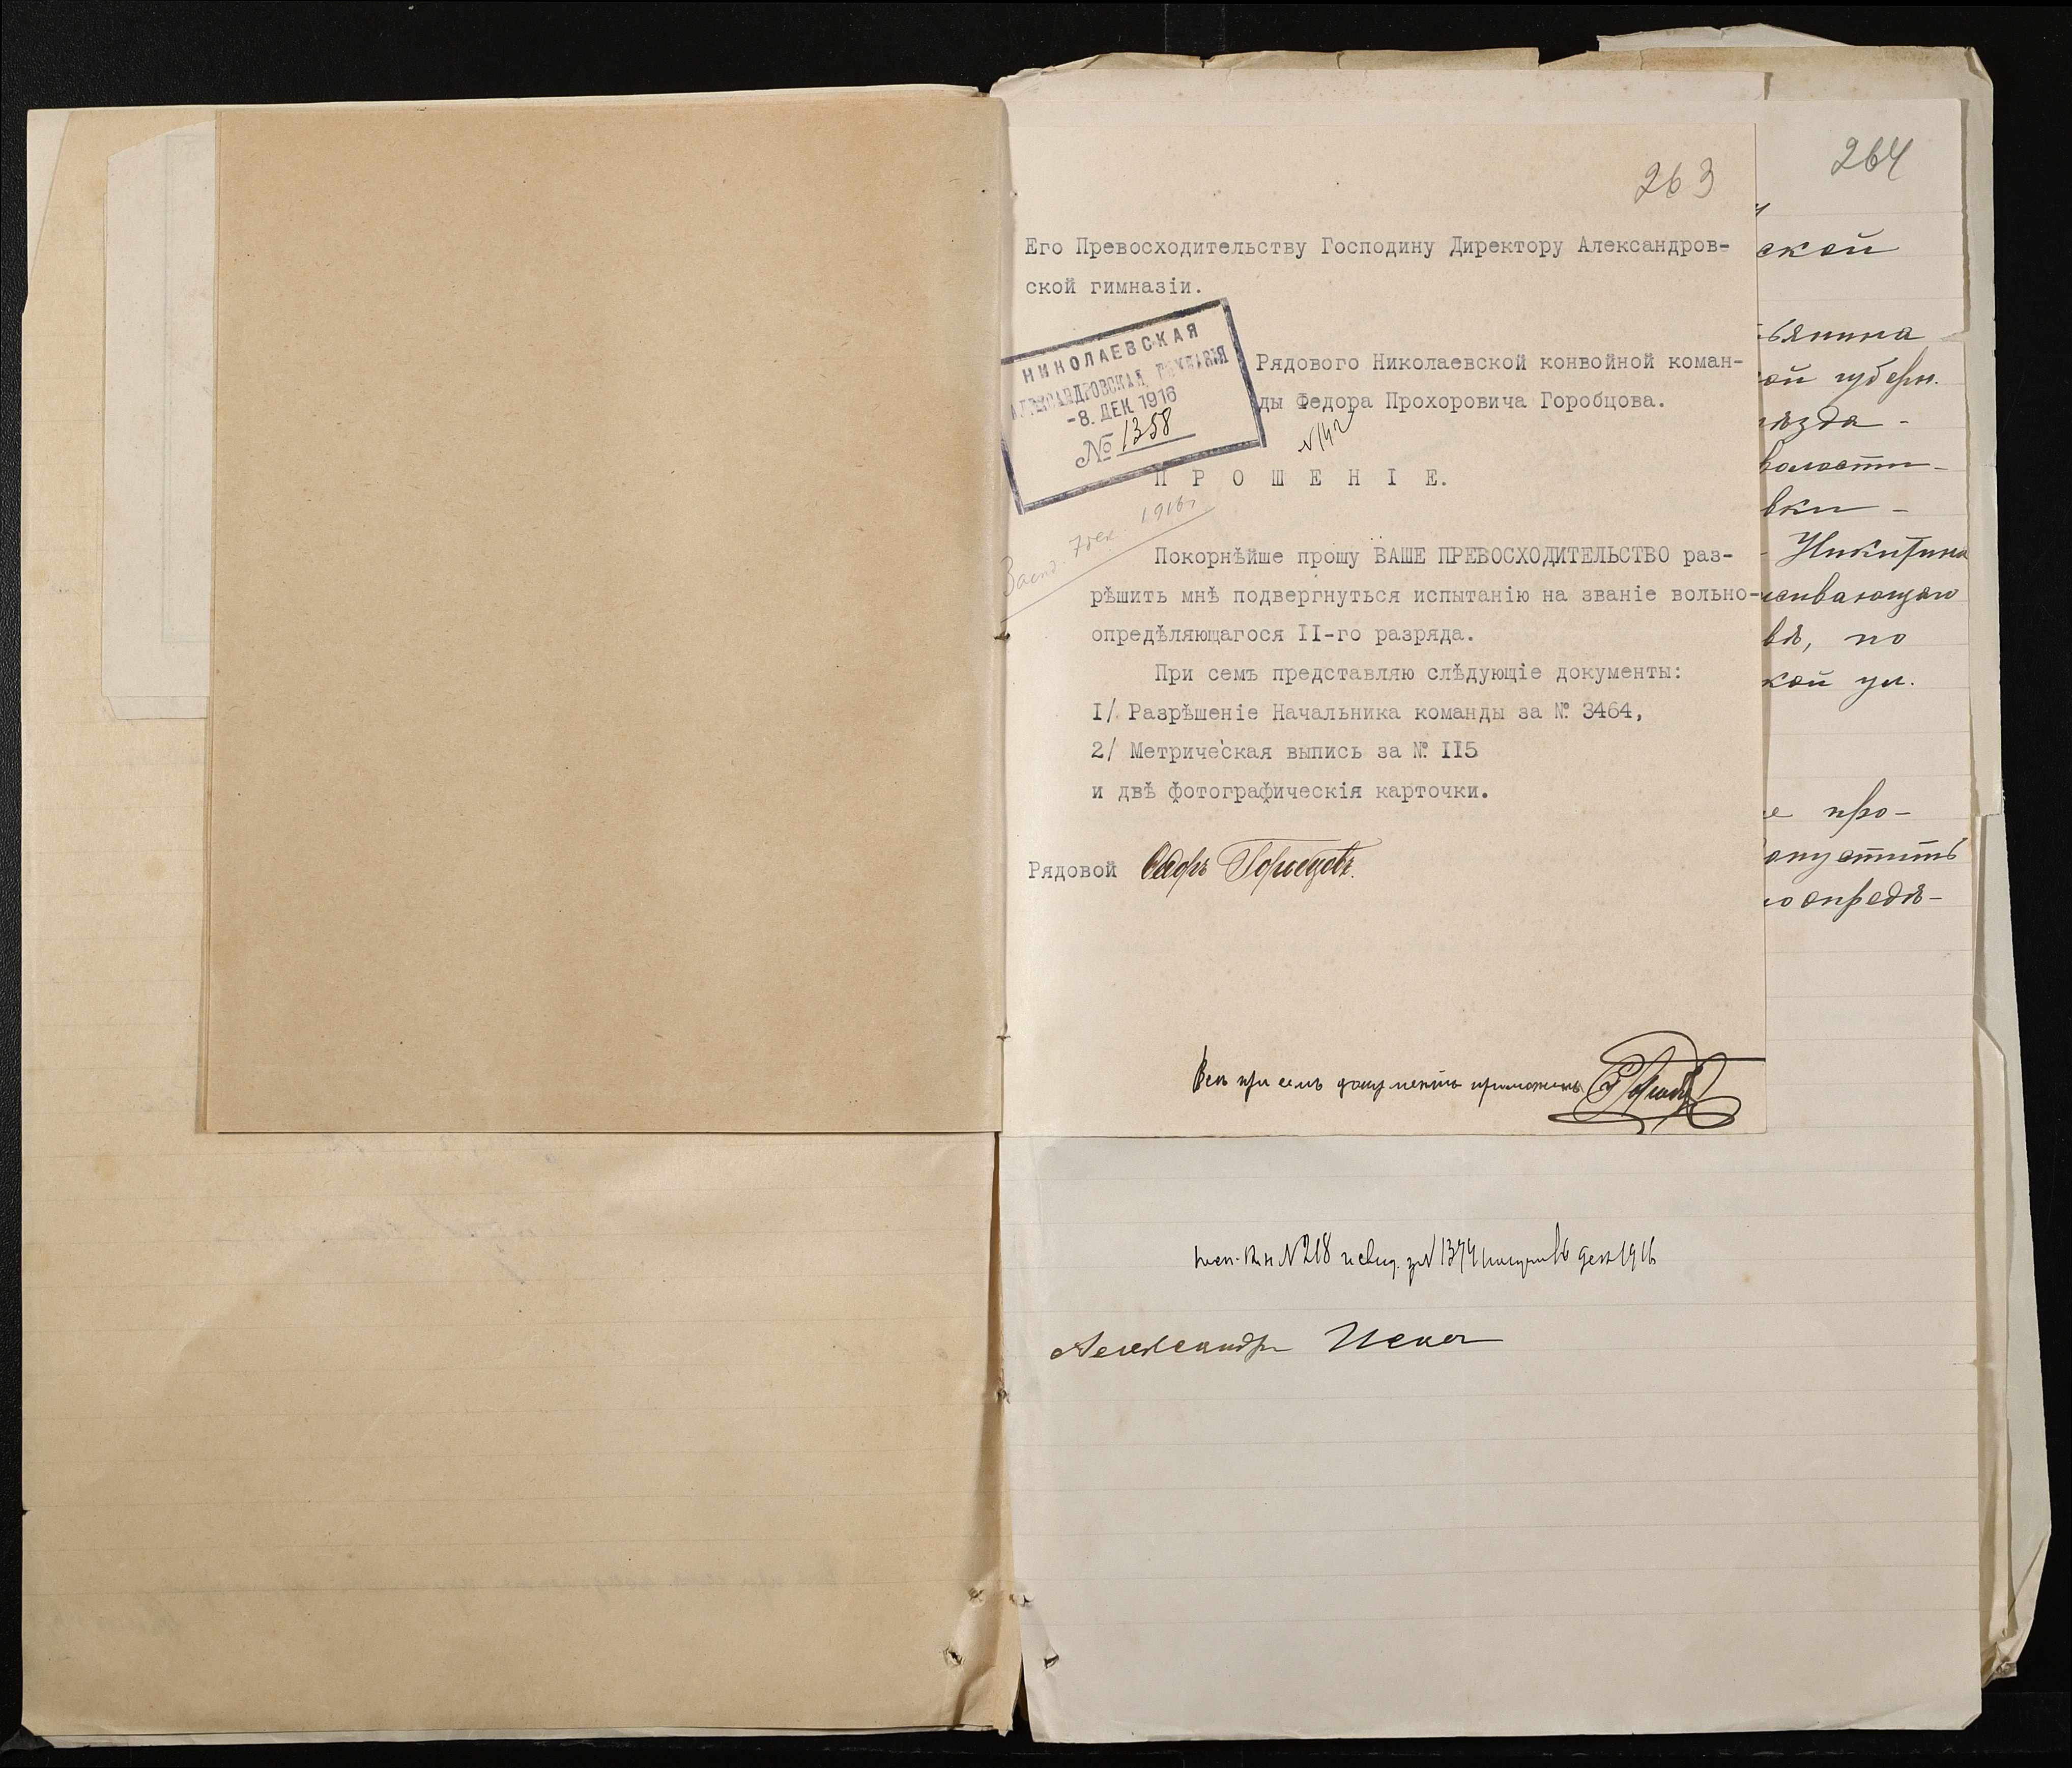 263
Его Превосходительству Господину Директору Александров-
ской гимназіи.
НИКОЛАЕВСКАЯ
АЛЕКСАНДРОВСКАЯ ГИМНАЗІЯ
-8. ДЕК. 1916
№ 1358
Рядового Николаевской конвойной коман-
ды Федора Прохоровича Горобцова.
П Р О Ш Е Н І Е.
7 дек. 1916 г
Покорнѣйше прошу ВАШЕ ПРЕВОСХОДИТЕЛЬСТВО раз-
рѣшить мнѣ подвергнуться испытанію на званіе вольно-
опредѣляющагося II-го разряда.
При семъ представляю слѣдующіе документы:
I/ Разрѣшеніе Начальника команды за № 3464,
2/ Метрическая выпись за № II5
и двѣ фотографическія карточки.
Рядовой Федоръ Горобцовъ.
Всѣ при семъ документы приложены
264
ской
ьянина
ой губерн.
ѣзда -
волости-
вки -
- Никитина
вѣ, по
кой ул.
е про-
опустить
о опредѣ-
№ 218 и свид. за № 1374 получилъ дек 1916
Александръ